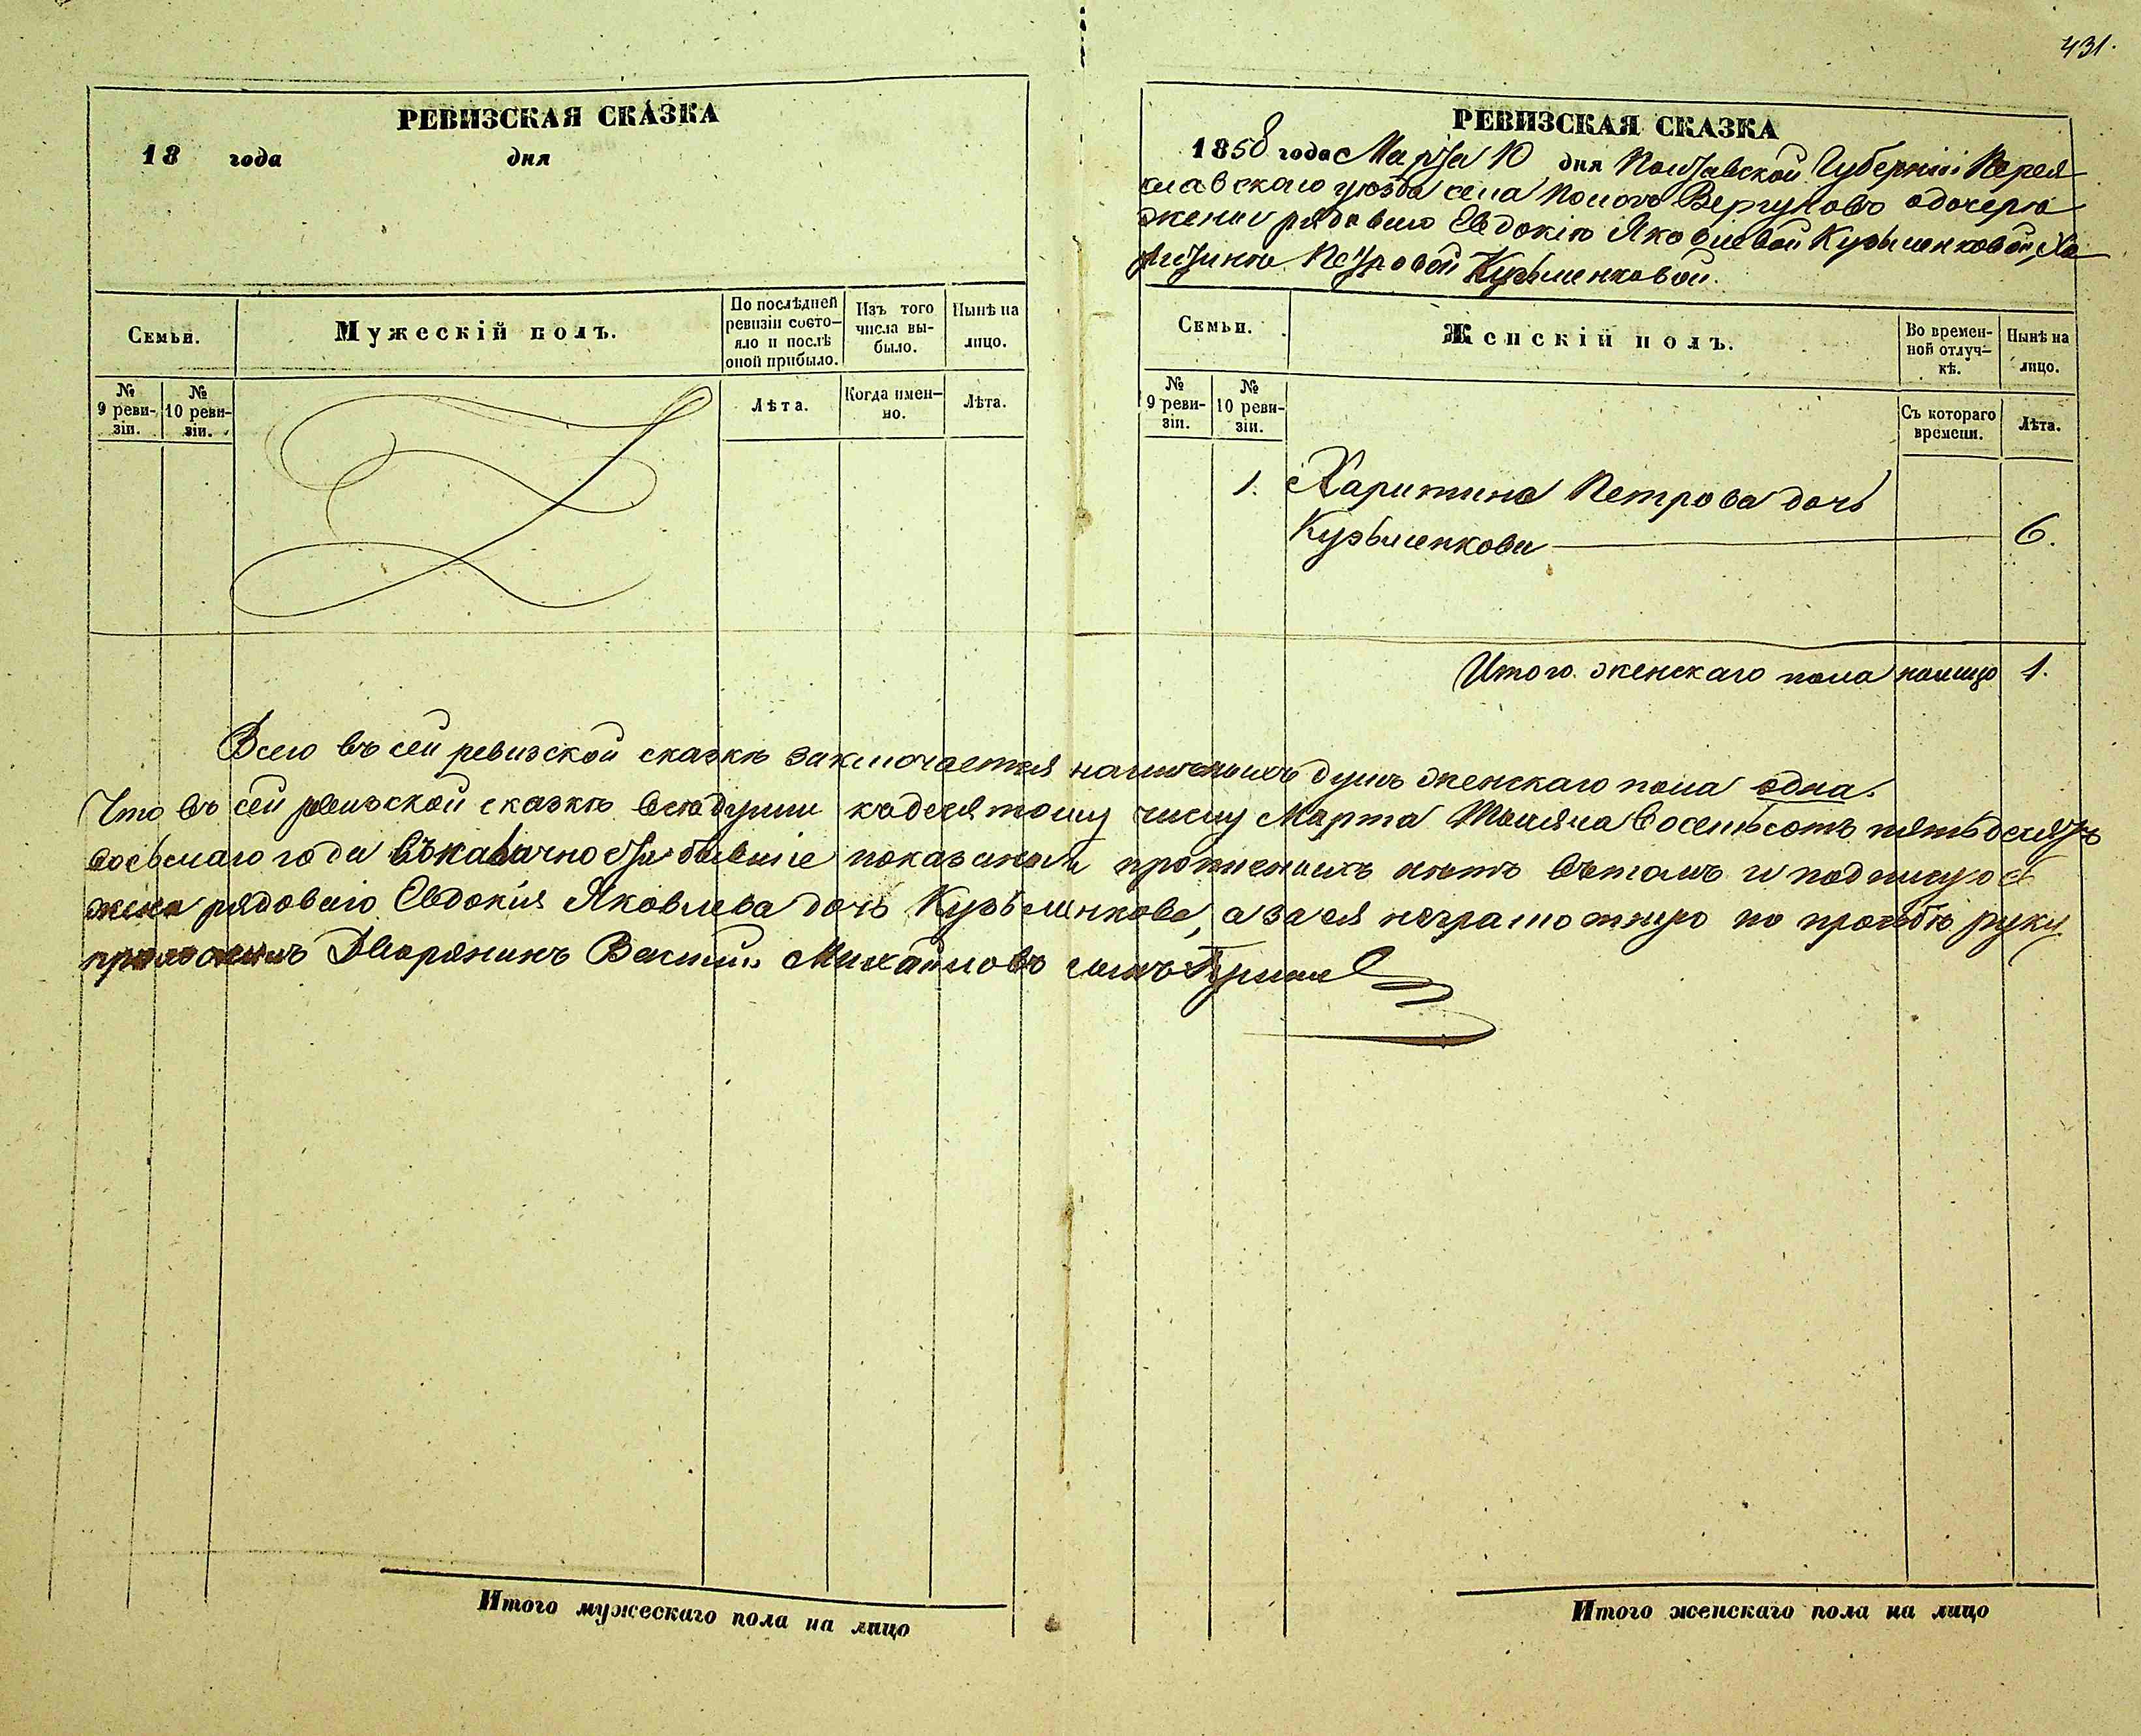 431.
РЕВИЗСКАЯ СКАЗКА
18 года дня
Семьи.
Мужескій полъ.
По послѣдней ревизіи состояло и послѣ оной прибыло.
Изъ того числа выбыло.
Нынѣ на лицо.
№ 9 ревизіи.
№ 10 ревизіи.
Лѣта.
Когда именно.
Лѣта.
РЕВИЗСКАЯ СКАЗКА
1858 года Марта 10 дня Полтавской Губерніи Перея
славскаго уѣзда села Вергуновъ о дочерю
жены рядоваго Евдокіи Яковлевой Кузьменковой, Ха
ритины Петровой Кузьменковой.
Семьи.
Женскій полъ.
Во временной отлучкѣ.
Нынѣ на лицо.
№ 9 ревизіи.
№ 10 ревизіи.
Съ котораго времени.
Лѣта.
1. Харитина Петрова дочь
Кузьменкова 6.
Итого женскаго пола налицо 1.
Всего въ сей ревизской сказкѣ заключается наличныхъ душъ женскаго пола одна.
Что въ сей ревизской сказкѣ всѣ души къ десятому числу Марта Тысяча восемьсотъ пятьдесятъ
восьмаго года въ наличности бывшіе показаны и нѣтъ въ томъ и подписуюсь
жена рядоваго Евдокія Яковлева дочь Кузьменкова, а за ея неграмотную по прозьбѣ руку
приложилъ Дворянинъ Василій Михайловъ сынъ
Итого мужескаго пола на лицо
Итого женскаго пола на лицо